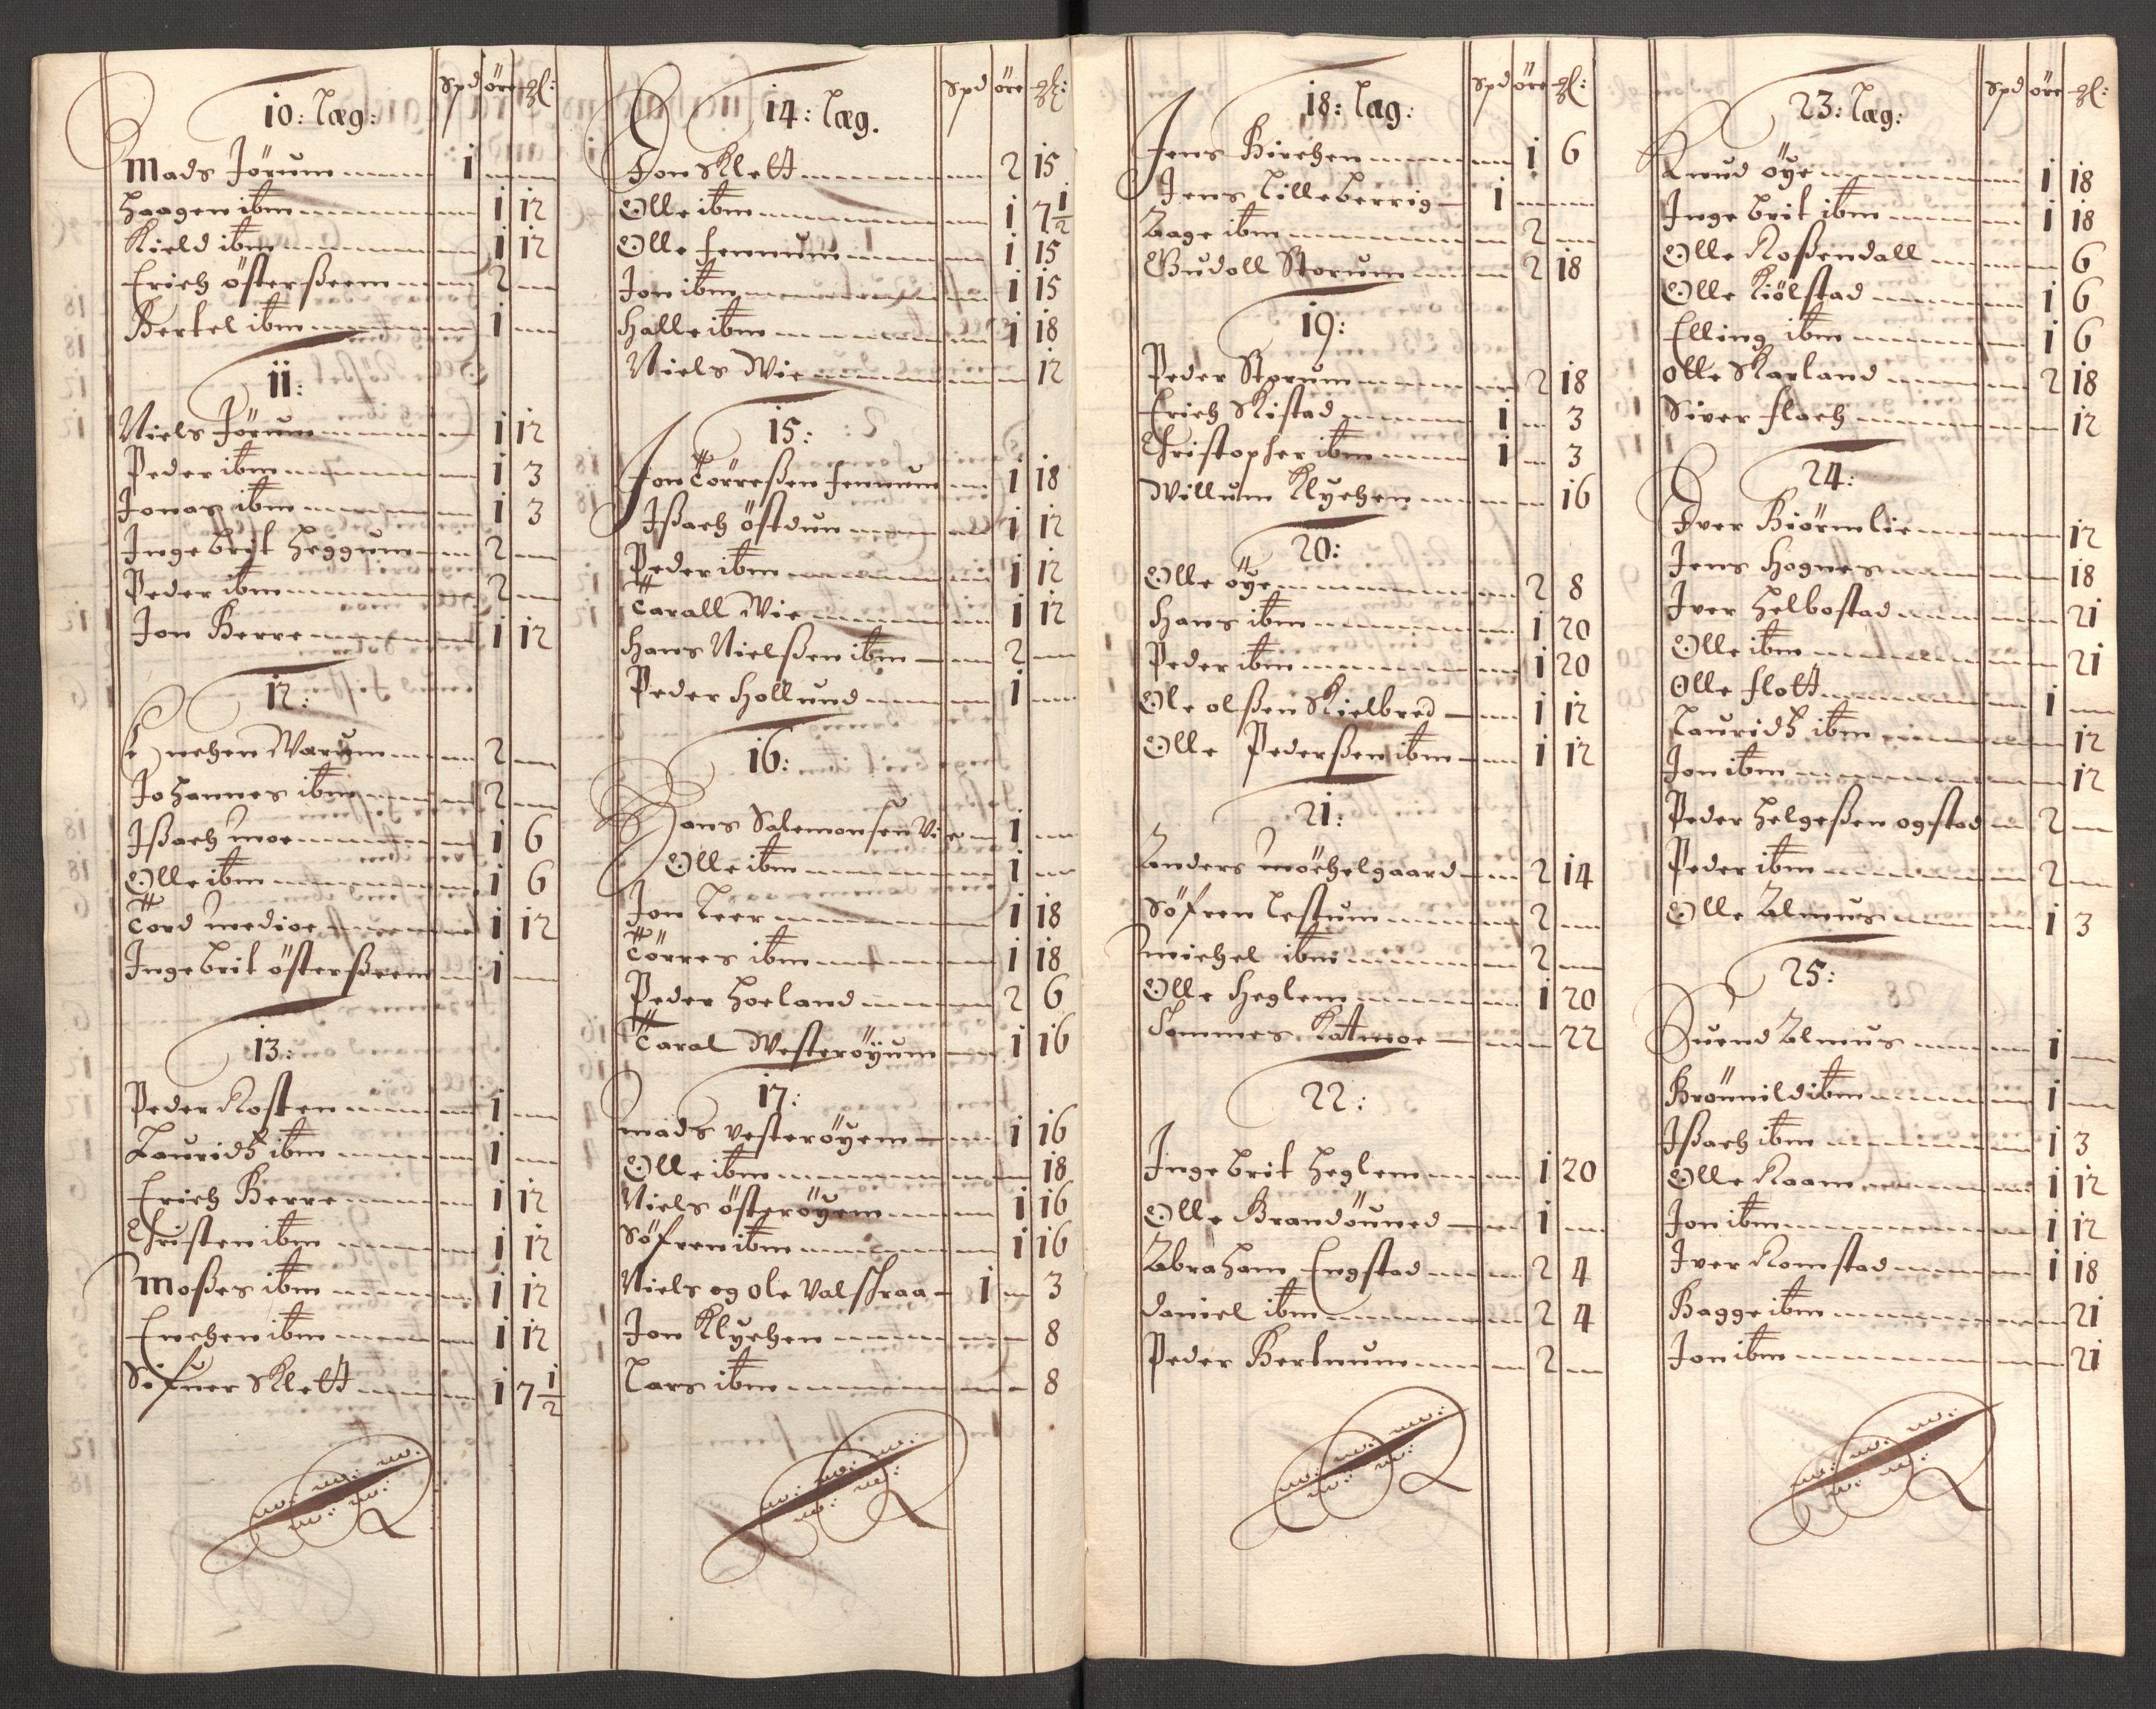 Spd öre gl:
10: Læg:
Mads Jörum 1
Haagen ibm 1 12
Kield ibm 1 12
Erich österßeem 2
Bertel ibm 1
11:
Niels Jörum 1 12
Peder ibm 1 3
Jonas ibm 1 3
Ingebrit Heggum 2
Peder ibm 2
Jon Berre 1 12
12:
Enchen Warum 2
Johannes ibm 2
Ißach moe 1 6
Olle ibm 1 6
Tord medioe 1 12
Ingebrit österßeem 1
13:
Peder Rosten 1
Lauridtz ibm 1
Erich Berre 1 12
Christen ibm 1 12
Moßes ibm 1 12
Enchen ibm 1 12
Söfner Klett 1 7 1/2
Spd öre gl:
14: Læg.
Jon Klett 2 15
Olle ibm 1 7 1/2
Olle fennum 1 15
Jon ibm 1 15
Halle ibm 1 18
Niels Wie 12
15:
Jon Törreßen fennum 1 18
Ißach östdun 1 12
Peder ibm 1 12
Tarall Wie 1 12
Hans Nielßen ibm 2
Peder Hollund 1
16:
Hans Salemonsen Vie 1
Olle ibm 1
Jon Leer 1 18
Törres ibm 1 18
Peder Hoeland 2 6
Taral Westeröyum 1 16
17:
mads vesteröyem 1 16
Olle ibm 18
Niels österöyem 1 16
Söfren ibm 1 16
Niels og ole Valschraa 1 3
Jon Klychen 8
Lars ibm 8
Spd öre gl:
18: Læg:
Jens Birchen 1 6
Jens Lilleberrig 1
Aage ibm 2
Gudoll Storum 2 18
19:
Peder Storum 2 18
Erich Kistad 1 3
Christopher ibm 1 3
Willum Klychen 16
20:
Olle öye 2 8
Hans ibm 1 20
Peder ibm 1 20
Ole olßen Kielbred 1 12
Olle Pederßen ibm 1 12
21:
Anders Möchelgaard 2 14
Söfren Lestum 2
michel ibm 2
Olle Heglem 1 20
Tommes Katmoe 22
22:
Ingebrit Heglem 1 20
Olle Brandöuned 1
Abraham Engstad 2 4
Daniel ibm 2 4
Peder Bertnum 2
Spd öre gl:
23: Læg:
Knud öye 1 18
Ingebrit ibm 1 18
Olle Roßendall 6
Olle Kiölstad 1 6
Elling ibm 1 6
Olle Karland 2 18
Siver flach 12
24:
Iver Kiörmlie 12
Jens Hognes 18
Iver Helbostad 21
Olle ibm 21
Olle flott 1
Lauridtz ibm 12
Jon ibm 12
Peder Helgeßen ogstad 2
Peder ibm 2
Olle Almus 1 3
25:
Suend Almus 1
Brönnild ibm 1
Ißach ibm 1 3
Olle Raam 1 12
Jon ibm 1 12
Iver Romstad 1 18
Bagge ibm 21
Jon ibm 21